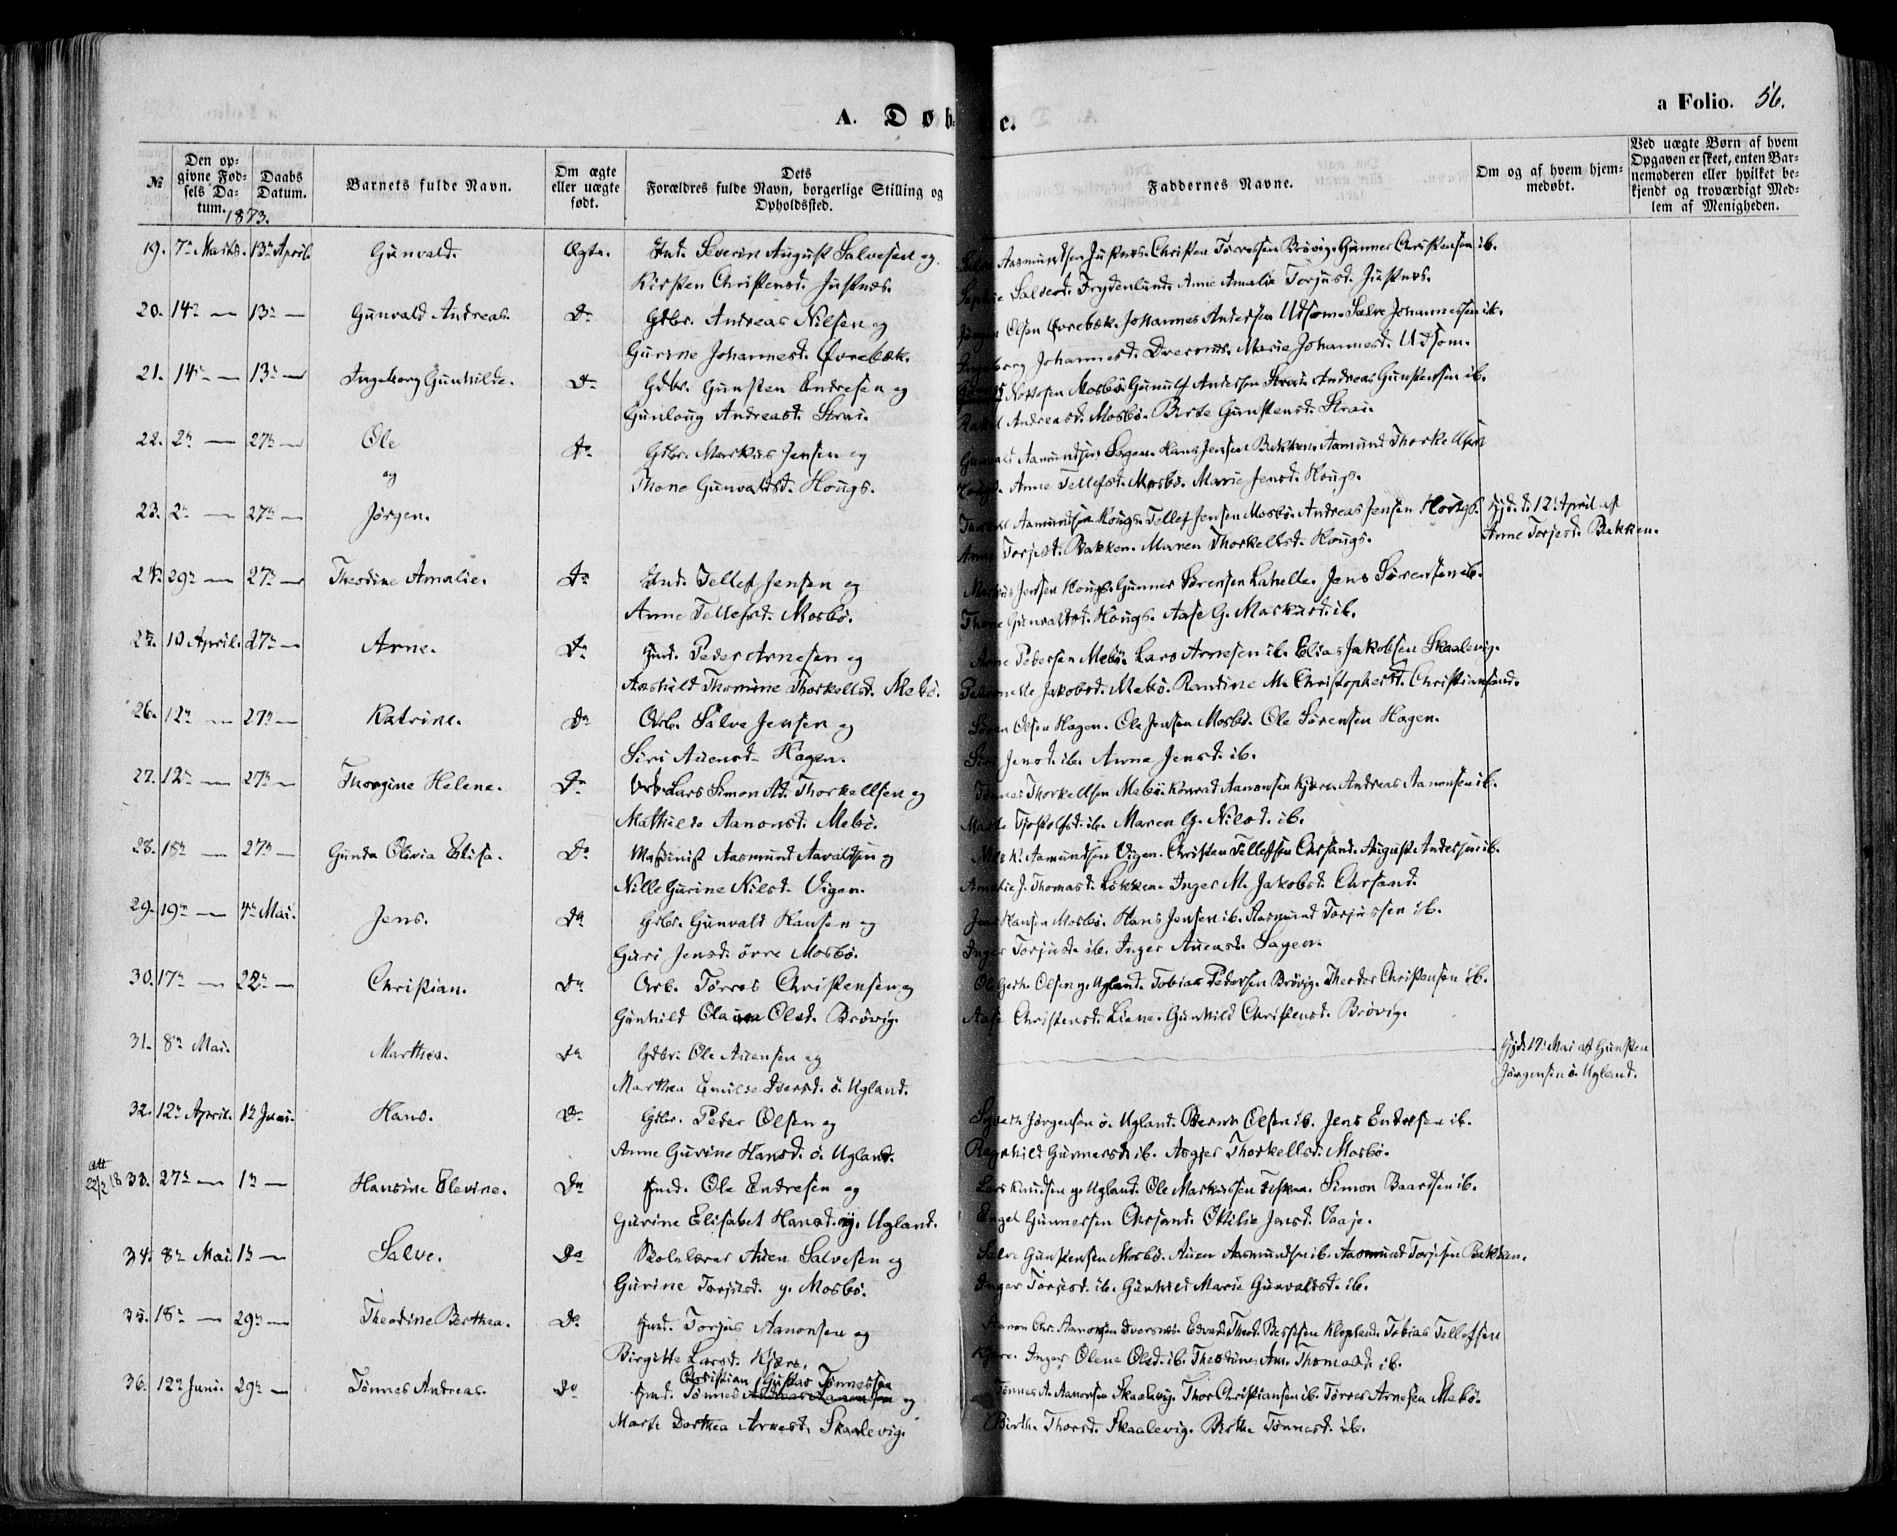 A. Døb e. a Folio. 56.
№ Den opgivne Fødsels Datum. Daabs Datum. Barnets fulde Navn. Om ægte eller uægte født. Dets Forældres fulde Navn, borgerlige Stilling og Opholdssted. Faddernes Navne. Om og af hvem hjemmedøbt. Ved uægte Børn af hvem Opgaven er skeet, enten Barnemoderen eller hvilket bekjendt og troværdigt Medlem af Menigheden.
1873.
19. 7de Marts. 13de April. Gunvald. Ægte. Ind. Severin August Salvesen og Aasmundsen Justnes. Christen Torresen Brøvig. Gunner Christensen ib.
Kirsten Christensd. Justnes. Sophie Salvesd. Frydenlund. Anne Amalie Torjusd. Justnes.
20. 14de — 13de — Gunvald Andreas. Do Gdbr. Andreas Nilsen og Jørgen Olsen Øvrebæk. Johannes Andersen Udsom. Salve Johannessen ib.
Gurine Johannesd. Øvrebæk. Ingeborg Johannesd. Dversnes. Marie Johannesd. Udsom.
21. 14de — 13de — Ingeborg Gunhilde. Do Gdbr. Gunsten Endresen og Mosbø. Gunulf Andersen Strai. Andreas Gunstensen ib.
Gunloug Andreasd. Strai. Rakel Andreasd. Mosbø. Berte Gunstensd. Strai.
22. 2de — 27de — Ole Do Gdbr. Markus Jensen og Gunvald Aamundsen Sagen. Hans Jensen Bakken. Aamund Thorkellsen
og Thone Gunvaldsd. Hougs. Hougs. Anne Tellefsd. Mosbø. Marie Jensd. Hougs.
23. 2de — 27de — Jørgen. Thorkel Aamundsen Hougs. Tellef Jensen Mosbø. Andreas Jensen Hougs. Hjd. d. 12 April af
Anne Torjusd. Bakken. Maren Thorkellsd. Hougs. Anne Torjesd. Bakken.
24. 29de — 27de — Theodine Amalie. Do Ind. Tellef Jensen og Markus Jensen Hougs. Gunner Sørensen Lahelle. Jens Sørensen ib.
Anne Tellefsd. Mosbø. Thone Gunvaldsd. Hougs. Aase G. Markusd. ib.
25. 10 April. 27de — Arne. Do Ind. Peder Arnesen og Arne Pedersen Mebø. Lars Arnesen ib. Elias Jakobsen Skaalevig.
Aashild Thomine Thorkellsd. Mebø. Petronelle Jakobsd. Mebø. Randine M. Christophersd. Christiansand.
26. 12de — 27de — Katrine. Do Arb. Salve Jensen og Søren Olsen Hagen. Ole Jensen Mosbø. Ole Sørensen Hagen.
Siri Auensd. Hagen. Siri Jensd. ib. Anna Jensd. ib.
27. 12de — 27de — Thorgine Helene. Do Arb. Lars Simon Ad. Thorkellsen og Tønnes Thorkellsen Mebø. Konrad Aanonsen Kjære. Andreas Aanonsen ib.
Mathilde Aanonsd. Mebø. Marthe Tjostolfsd. ib. Maren G. Nilsd. ib.
28. 18de — 27de — Gunda Olivia Elisa. Do Maskinist Aasmund Aavaldsen og Nils K. Aamundsen Vigen. Christen Tellefsen Chrsand. August Andersen ib.
Nille Gurine Nilsd. Vigen. Amalie J. Thomasd. Løkken. Inger M. Jakobsd. Chrsand.
29. 19de — 4de Mai. Jens. Do Gdbr. Gunvald Hansen og Jens Hansen Mosbø. Hans Jensen ib. Aasmund Torjussen ib.
Guri Jensd. øvre Mosbø. Inger Torjusd. ib. Inger Auensd. Sagen.
30. 17de — 22de — Christian. Do Arb. Torres Christensen og Ole Gerh. Olsen y. Ugland. Tobias Pedersen Brøvig. Theodor Christensen ib.
Gunhild Olava Olsd. Brøvig. Aase Christensd. Liene. Gunhild Christensd. Brøvig.
31. 8de Mai. Marthea. Do Gdbr. Ole Auensen og Hjd. 17 Mai af Gunsten
Marthea Emilie Iversd. ø. Ugland. Jørgensen ø. Ugland.
32. 12de April. 1de Juni. Hans. Do Gdbr. Peder Olsen og Syvert Jørgensen ø. Ugland. Bernt Olsen ib. Jens Endresen ib.
Anne Gurine Hansd. ø. Ugland. Ragnhild Gunnersd. ib. Asgjer Thorkellsd. Mosbø.
Att 22/2 18 33. 27de — 1de — Hansine Elevine. Do Ind. Ole Endresen og Lars Knudsen y. Ugland. Ole Markussen Eskon. Simon Baardsen ib.
Gurine Elisabet Hansd. y. Ugland. Engel Gunnersen Chrsand. Othilie Jensd. Vaaje.
34. 8de Mai. 1de — Salve. Do Skolelærer Auen Salvesen og Salve Gunstensen Mosbø. Auen Aasmundsen ib. Aasmund Torjesen Bakken.
Gurine Torjusd. y. Mosbø. Inger Torjesd. ib. Gunhild Marie Gunvaldsd. ib.
35. 18de — 29de — Theodine Berthea. Do Ind. Torjus Aanonsen og Aanon Chr. Aanonsen Dversnes. Edvard Theod. Bessesen Klepland. Tobias Tellefsen
Birgitte Larsd. Kjære. Kjære. Inger Olene Olsd. ib. Theodine Am. Thomasd. ib.
Christian Gustav Tønnessen
36. 12de Juni. 29de — Tønnes Andreas. Do Ind. Tønnes Andreas Aanonsen og Tønnes A. Aanonsen Skaalevig. Thor Christiansen ib. Torres Arnesen Mebø.
Marte Dorthea Arnesd. Skaalevig. Birthe Thorsd. Skaalevig. Birthe Tønnesd. ib.